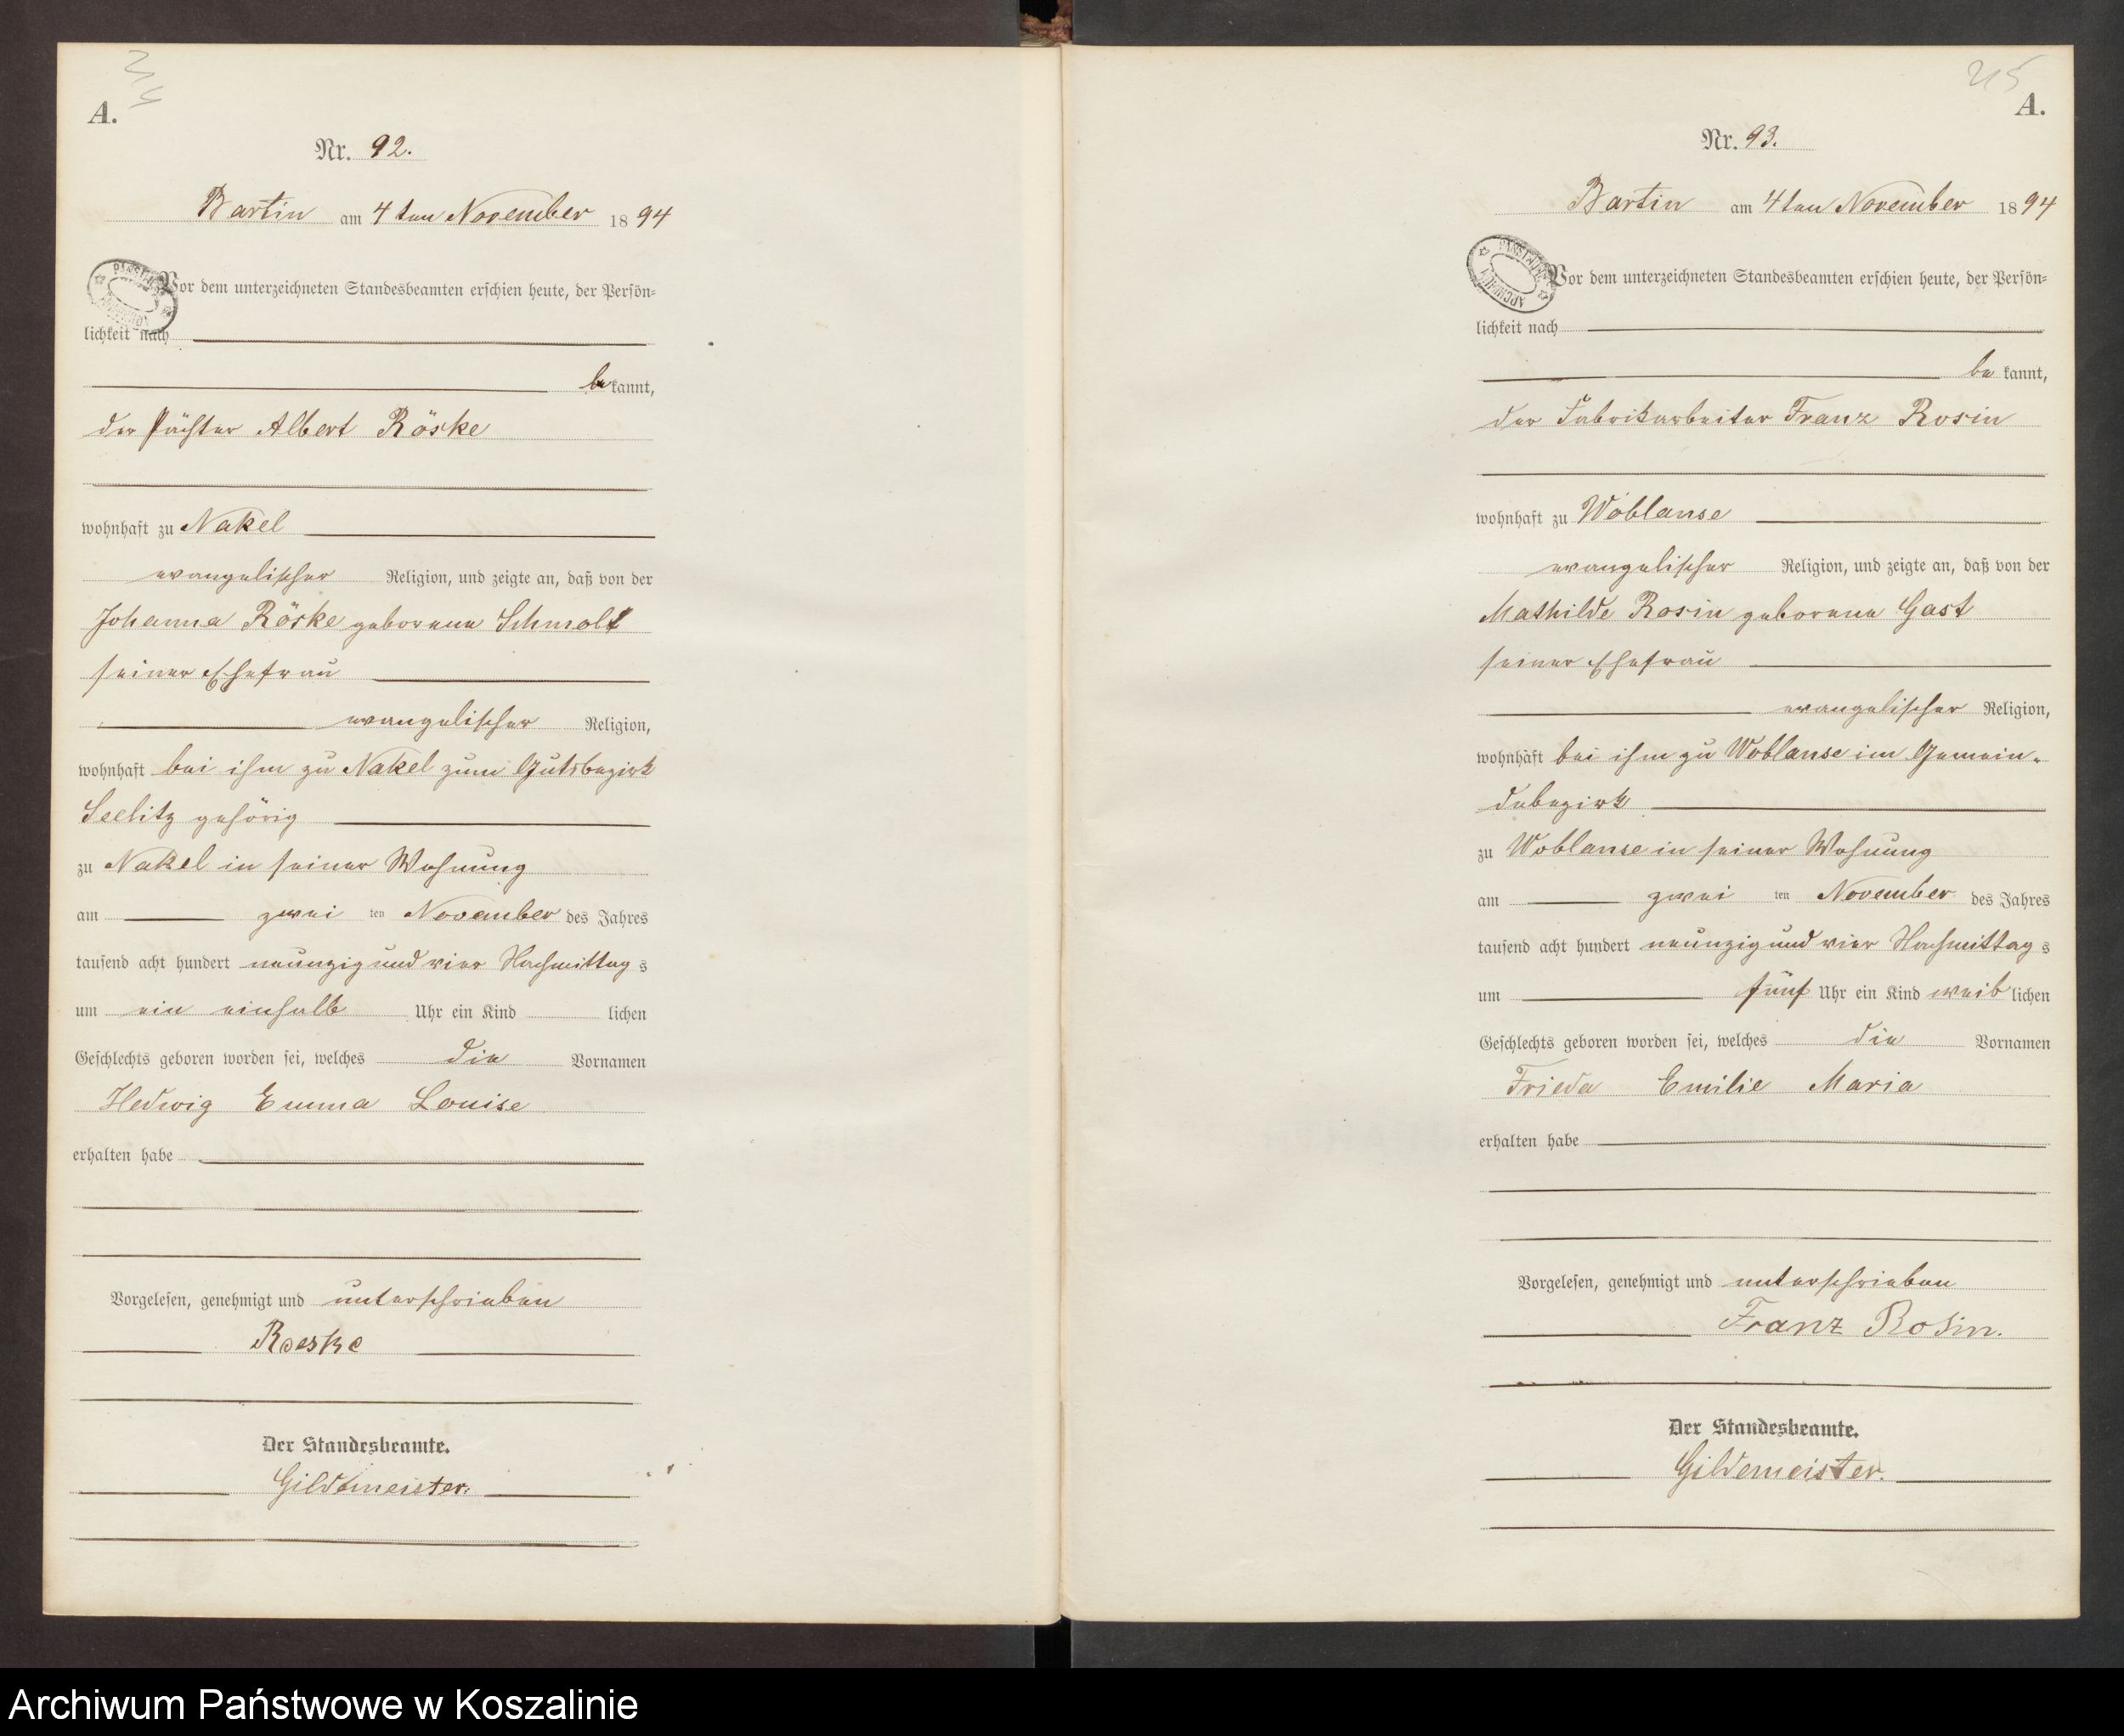 214
A.
Nr. 92.
Bartin am 4ten November 1894
Vor dem unterzeichneten Standesbeamten erschien heute, der Persön-
lichkeit nach
bekannt,
der Pächter Albert Röske
wohnhaft zu Nakel
evangelischer Religion, und zeigte an, daß von der
Johanna Röske geborene Schmolt
seiner Ehefrau
evangelischer Religion,
wohnhaft bei ihm zu Nakel zum Gutsbezirk
Seelitz gehörig
zu Nakel in seiner Wohnung
am zwei ten November des Jahres
tausend acht hundert neunzig und vier Nachmittags
um ein einhalb Uhr ein Kind lichen
Geschlechts geboren worden sei, welches die Vornamen
Hedwig Emma Louise
erhalten habe
Vorgelesen, genehmigt und unterschrieben
Roeske
Der Standesbeamte.
Gildemeister.
215
A.
Nr. 93.
Bartin am 4ten November 1894
Vor dem unterzeichneten Standesbeamten erschien heute, der Persön-
lichkeit nach
be kannt,
der Fabrikarbeiter Franz Rosin
wohnhaft zu Woblanse
evangelischer Religion, und zeigte an, daß von der
Mathilde Rosin geborene Gast
seiner Ehefrau
evangelischer Religion,
wohnhaft bei ihm zu Woblanse im Gemein-
debezirk
zu Woblanse in seiner Wohnung
am zwei ten November des Jahres
tausend acht hundert neunzig und vier Nachmittags
um fünf Uhr ein Kind weiblichen
Geschlechts geboren worden sei, welches die Vornamen
Frieda Emilie Maria
erhalten habe
Vorgelesen, genehmigt und unterschrieben
Franz Rosin.
Der Standesbeamte.
Gildemeister.
Archiwum Państwowe w Koszalinie